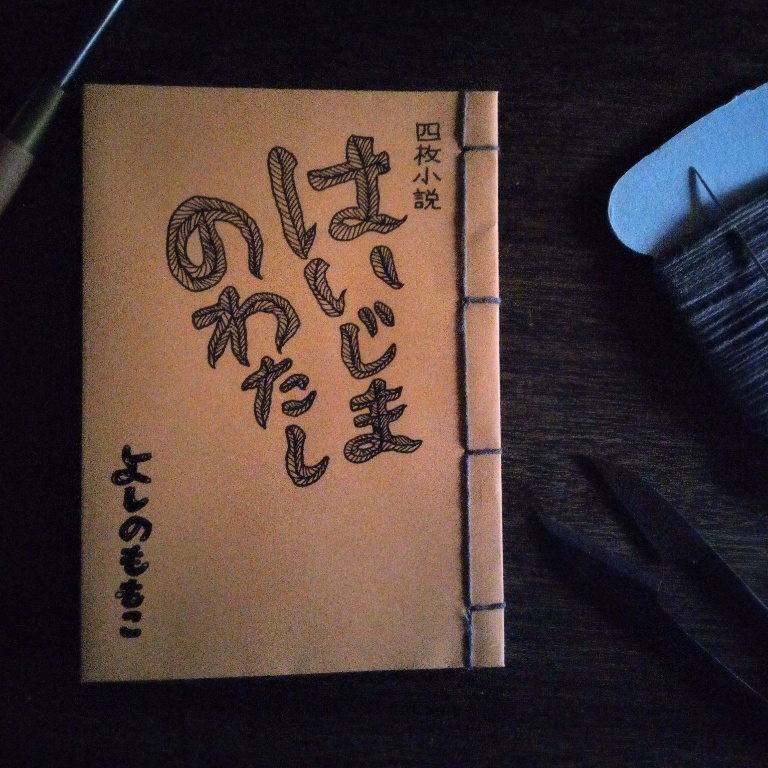 四枚小説
はいじま
のわたし
よしのももこ